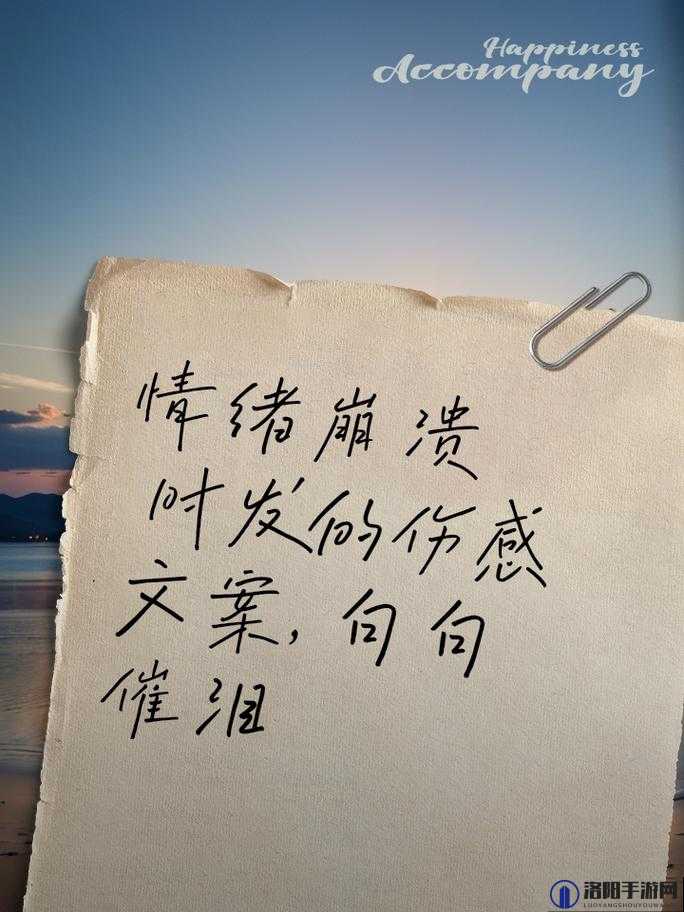 Happiness
Accompany
情绪崩溃
时发的伤感
文案，句句
催泪
洛阳手游网
LUOYANGSHOUYOUWANG